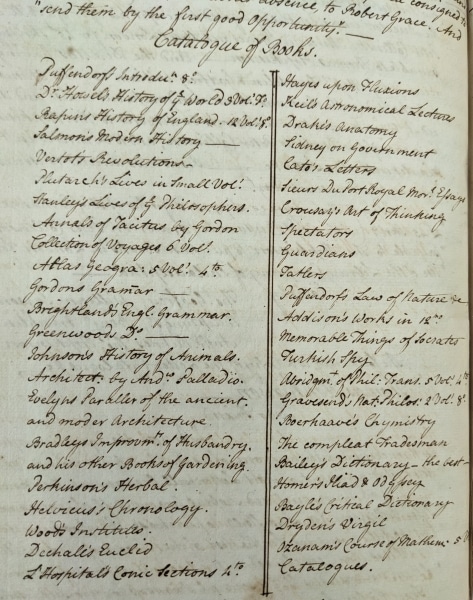 absence to Robert Grace. And
"send them by the first good Opportunity". —
Catalogue of Books.
Puffendorf's Introduc.n 8.o
Dr. Howel's History of ye World 3 Vol.s Fo.
Rapin's History of England. 12 Vol.s 8.o
Salmon's Modern History —
Vertot's Revolutions
Plutarch's Lives in Small Vol.s
Stanley's Lives of ye Philosophers.
Annals of Tacitus by Gordon
Collection of Voyages 6 Vol.s
Atlas Geogra: 5 Vol.s 4.to
Gordons Gramar —
Brightland's Engl. Grammar.
Greenwoods Do. —
Johnson's History of Animals.
Architect. by And.o Palladio.
Evelyns Paraller of the ancient
and moder Architecture
Bradley's Improvm.t of Husbandry.
and his other Books of Gardening.
Perkinson's Herbal
Helvicus's Chronology.
Wood's Institutes.
Dechalle's Euclid
L'Hospital's Conic Sections 4.to
Hayes upon Fluxions
Keil's Astronomical Lectures
Drake's Anatomy
Sidney on Government
Cato's Letters
Sieurs Du Port Royal Mor.l Essays
Crousay's Art of Thinking
Spectators
Guardians
Tatlers
Puffendorf's Law of Nature &c
Addison's Works in 12.mo
Memorable Things of Socrates
Turkish Spy
Abridgm.t of Phil: Trans. 5 Vol.s 4.to
Gravesend's Nat. Philos: 2 Vol.s 8.o
Boerhaave's Chymistry
The compleat Tradesman
Bailey's Dictionary — the best
Homer's Iliad & Odyssey
Bayle's Critical Dictionary
Dryden's Virgil
Ozanam's Course of Mathem: 5
Catalogues.